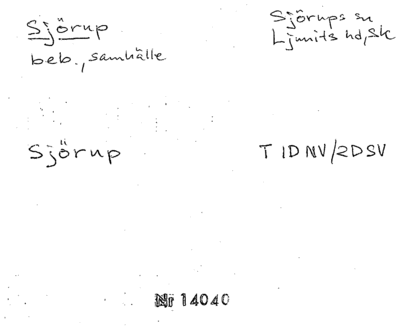 Sjörup
beb., samhälle
Sjörups sn
Ljunits hd, Sk
Sjörup
T 1D NV/2D SV
Nr 14040